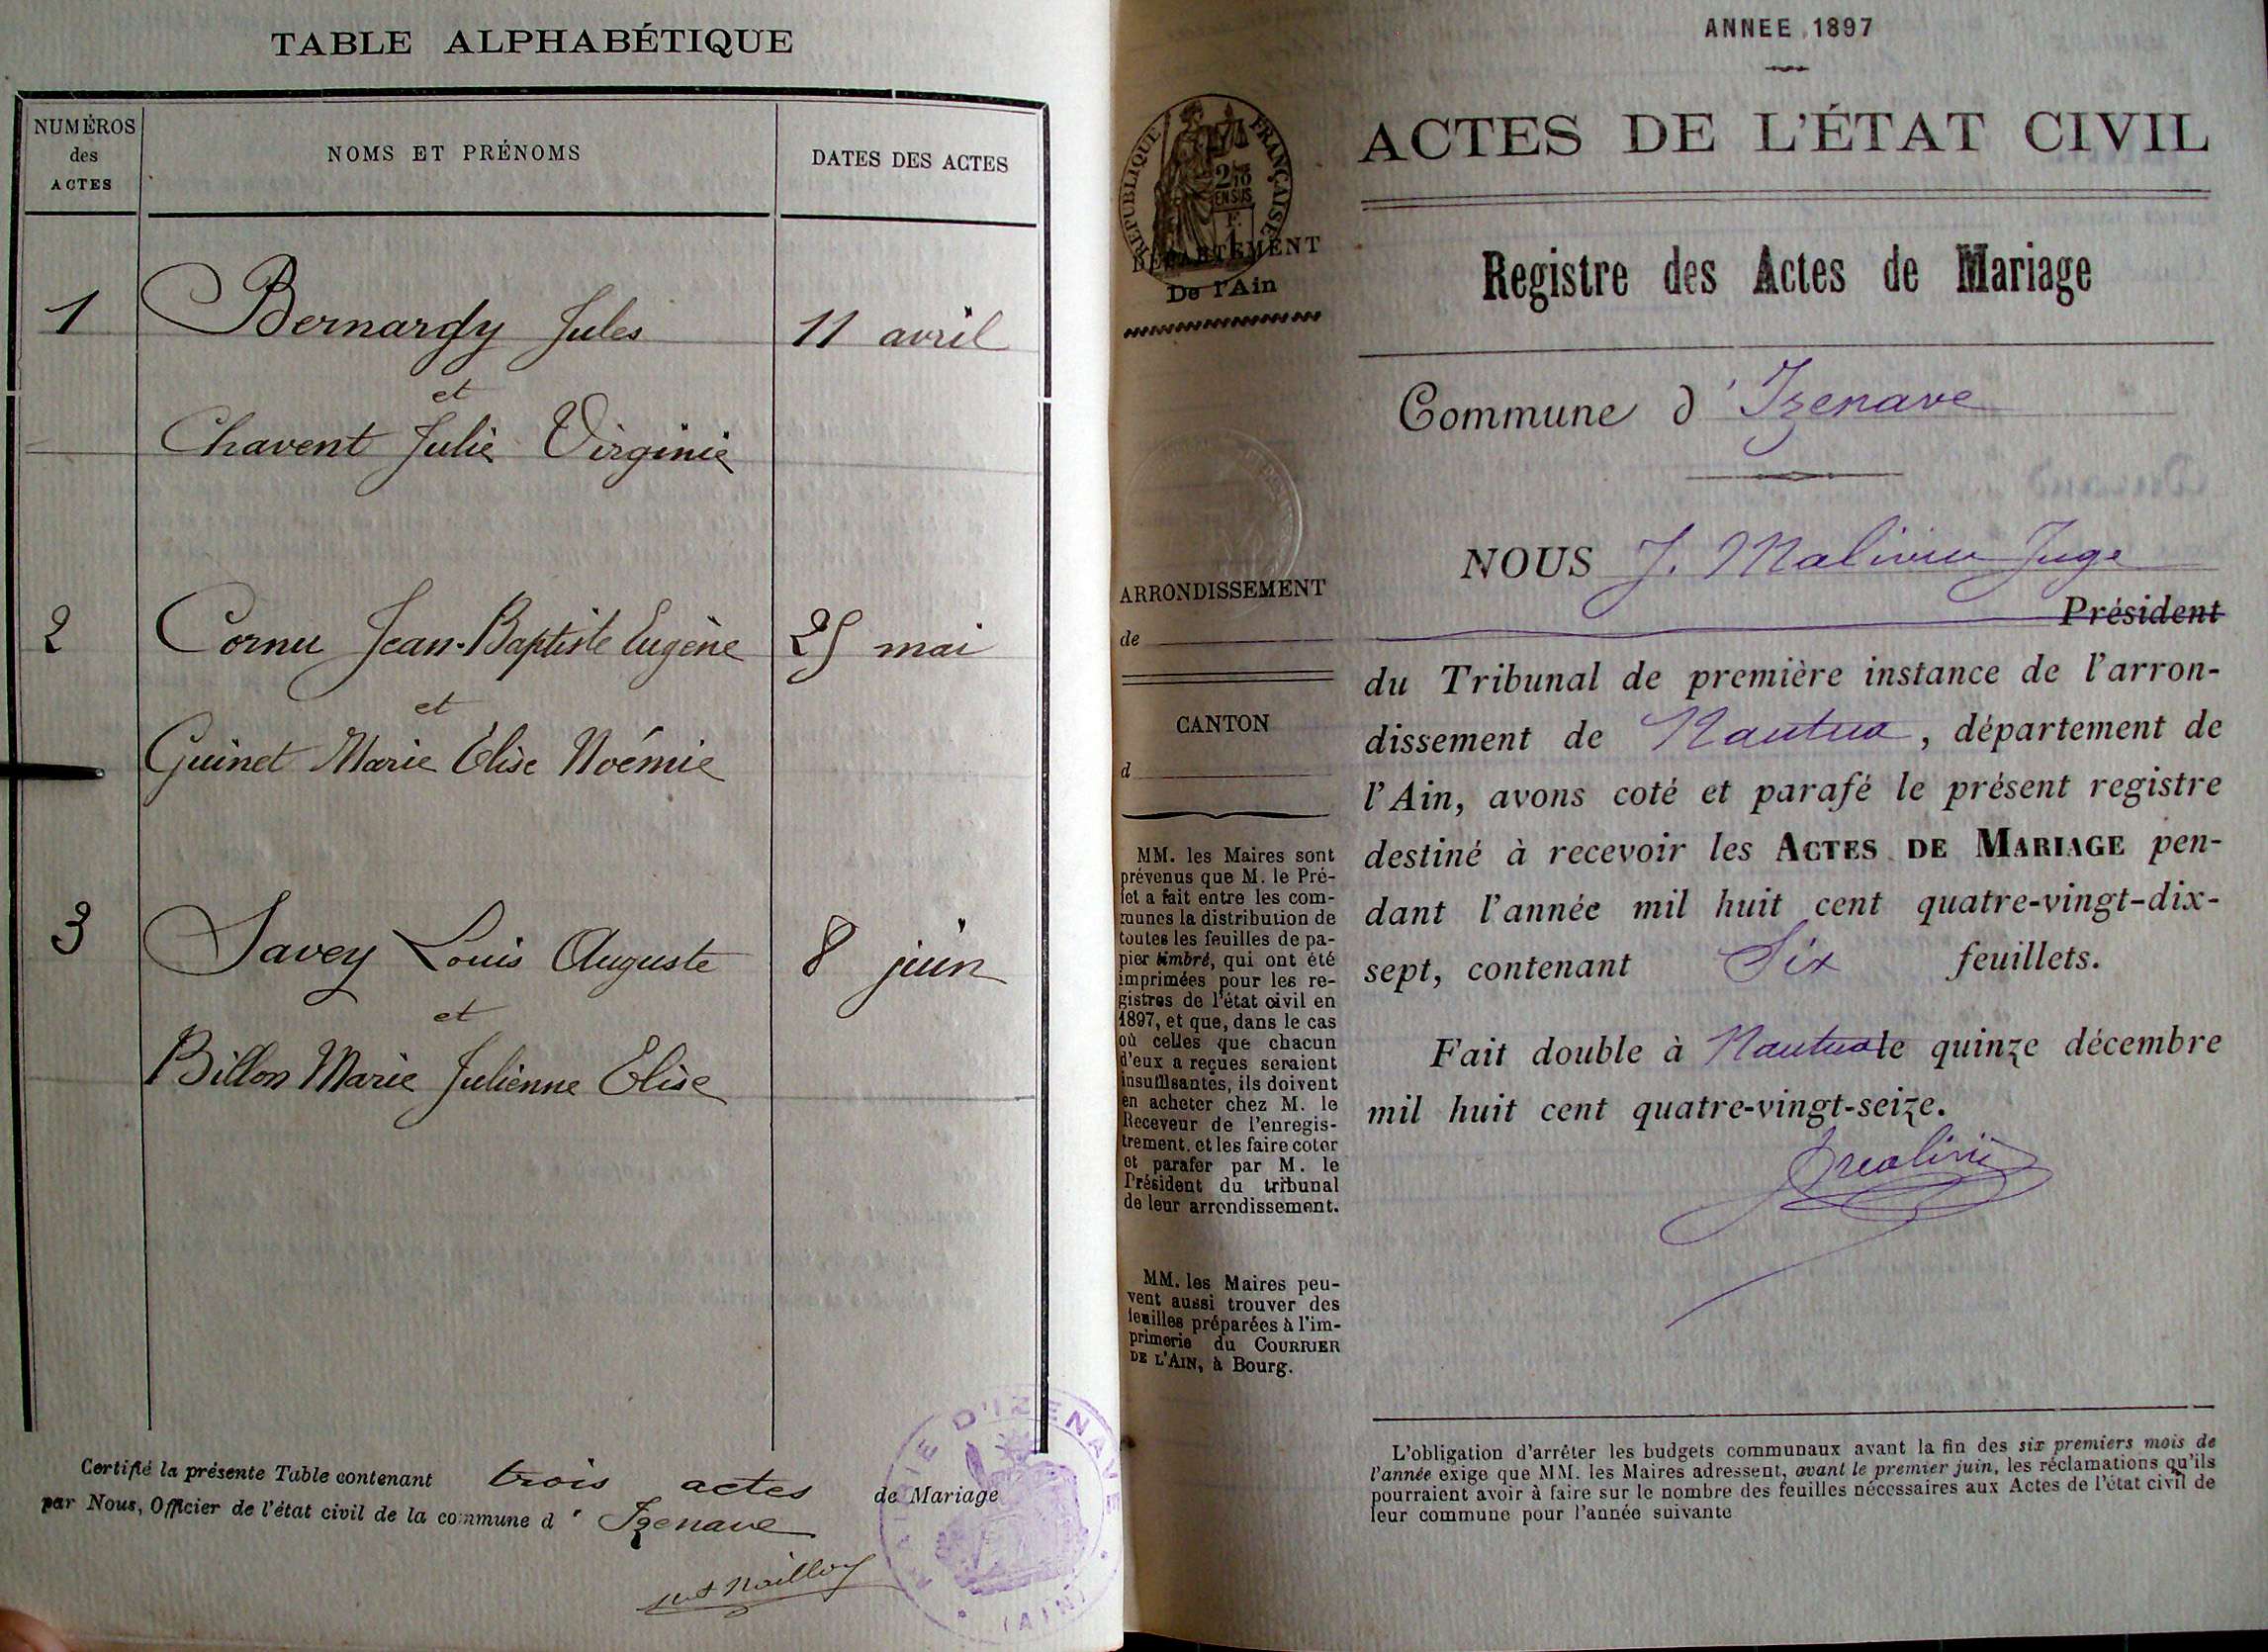 TABLE ALPHABÉTIQUE
NUMÉROS
des
ACTES
NOMS ET PRÉNOMS
DATES DES ACTES
1 Bernardy Jules 11 avril
et
Chavent Julie Virginie
2 Cornu Jean-Baptiste Eugène 25 mai
et
Guinet Marie Élise Noémie
3 Savey Louis Auguste 8 juin
et
Billon Marie Julienne Elise
Certifié la présente Table contenant trois actes de Mariage
par Nous, Officier de l'état civil de la commune d' Izenave
MAIRIE D'IZENAVE
(AIN)
ANNEE 1897
ACTES DE L'ÉTAT CIVIL
REPUBLIQUE FRANÇAISE
EN SUS
DÉPARTEMENT
De l'Ain
Registre des Actes de Mariage
Commune d'Izenave
ARRONDISSEMENT
de
CANTON
d
MM. les Maires sont
prévenus que M. le Pré-
fet a fait entre les com-
munes la distribution de
toutes les feuilles de pa-
pier timbré, qui ont été
imprimées pour les re-
gistres de l'état civil en
1897, et que, dans le cas
où celles que chacun
d'eux a reçues seraient
insuffisantes, ils doivent
en acheter chez M. le
Receveur de l'enregis-
trement. et les faire coter
et parafer par M. le
Président du tribunal
de leur arrondissement.
MM. les Maires peu-
vent aussi trouver des
feuilles préparées à l'im-
primerie du COURRIER
DE L'AIN, à Bourg.
NOUS J. Juge
Président
du Tribunal de première instance de l'arron-
dissement de Nantua, département de
l'Ain, avons coté et parafé le présent registre
destiné à recevoir les ACTES DE MARIAGE pen-
dant l'année mil huit cent quatre-vingt-dix-
sept, contenant Six feuillets.
Fait double à Nantua le quinze décembre
mil huit cent quatre-vingt-seize.
L'obligation d'arrêter les budgets communaux avant la fin des six premiers mois de
l'année exige que MM. les Maires adressent, avant le premier juin, les réclamations qu'ils
pourraient avoir à faire sur le nombre des feuilles nécessaires aux Actes de l'état civil de
leur commune pour l'année suivante